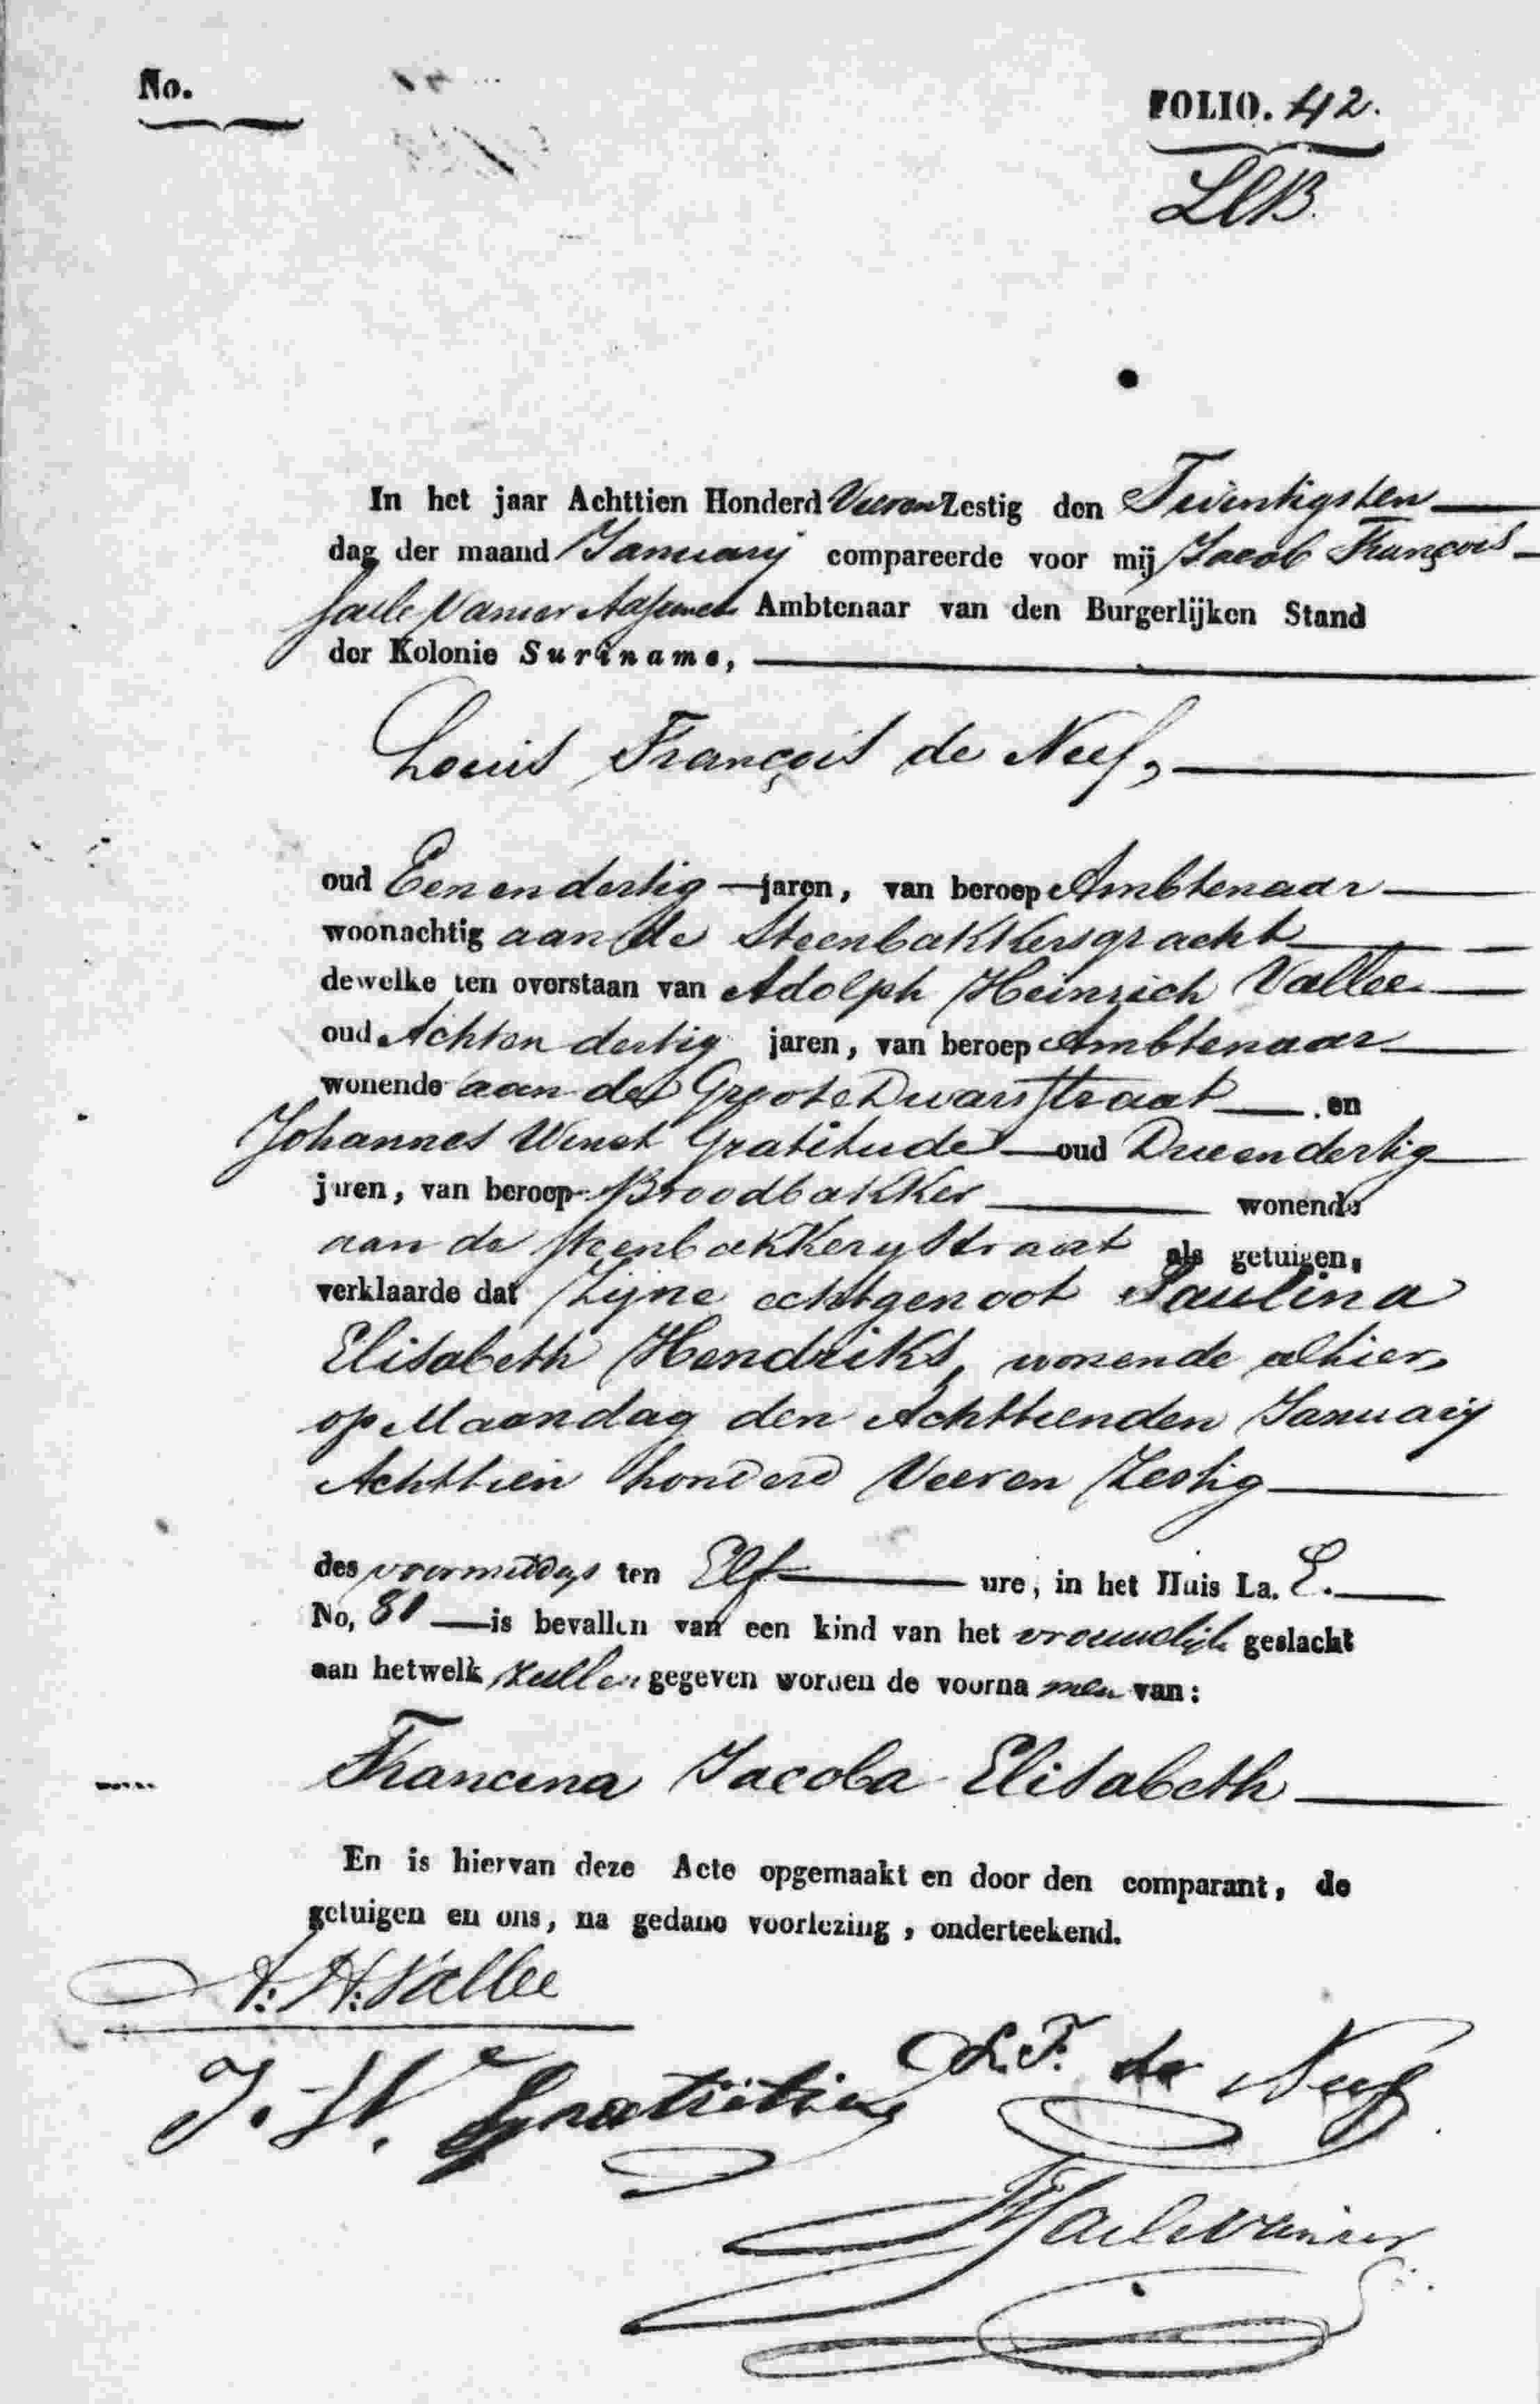 No.
FOLIO. 42.
In het jaar Achttien Honderd Vieren Zestig den Twintigsten
dag der maand January compareerde voor mij Jacob François
Ambtenaar van den Burgerlijken Stand
der Kolonie Suriname,
Louis François de Neef,
oud Een en dertig jaren, van beroep Ambtenaar
woonachtig aan de Steenbakkersgracht
dewelke ten overstaan van Adolph Heinrich Vallee
oud Achten dertig jaren, van beroep Ambtenaar
wonende aan de Groote Dwarsstraat en
Johannes Gratitude oud Drieendertig
jaren, van beroep Broodbakker wonende
aan de Steenbakkerystraat als getuigen,
verklaarde dat Zijne echtgenoot Paulina
Elisabeth Hendriks, wonende alhier,
op Maandag den Achttienden January
Achttien honderd Vieren Zestig
des voormiddags ten Elf ure, in het Huis La. E.
No, 81 is bevallen van een kind van het vrouwelijk geslacht
aan hetwelk zullen gegeven worden de voorna men van:
Francina Jacoba Elisabeth
En is hiervan deze Acte opgemaakt en door den comparant, de
getuigen en ons, na gedane voorlezing, onderteekend.
A: H: Vallee
L. F. de Neef
J. W.